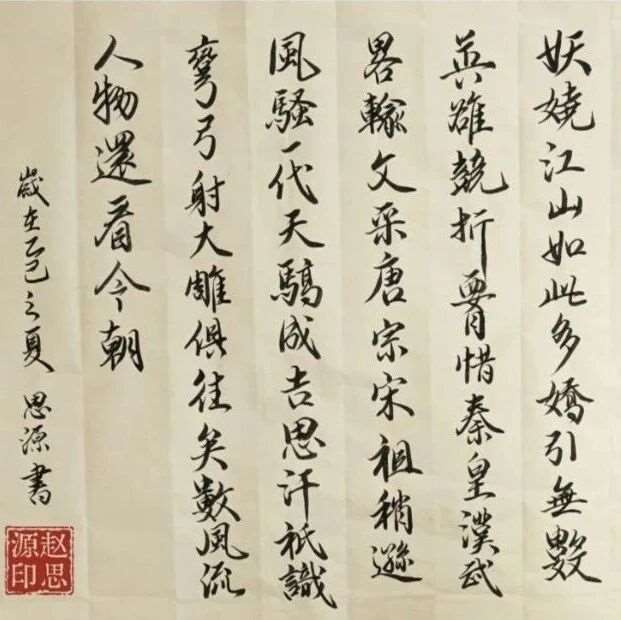 妖嬈江山如此多嬌引無數
英雄競折腰惜秦皇漢武
畧輸文采唐宗宋祖稍遜
風騷一代天驕成吉思汗祇識
彎弓射大雕俱往矣數風流
人物還看今朝
歲在乙巳之夏 思源書
赵思
源印